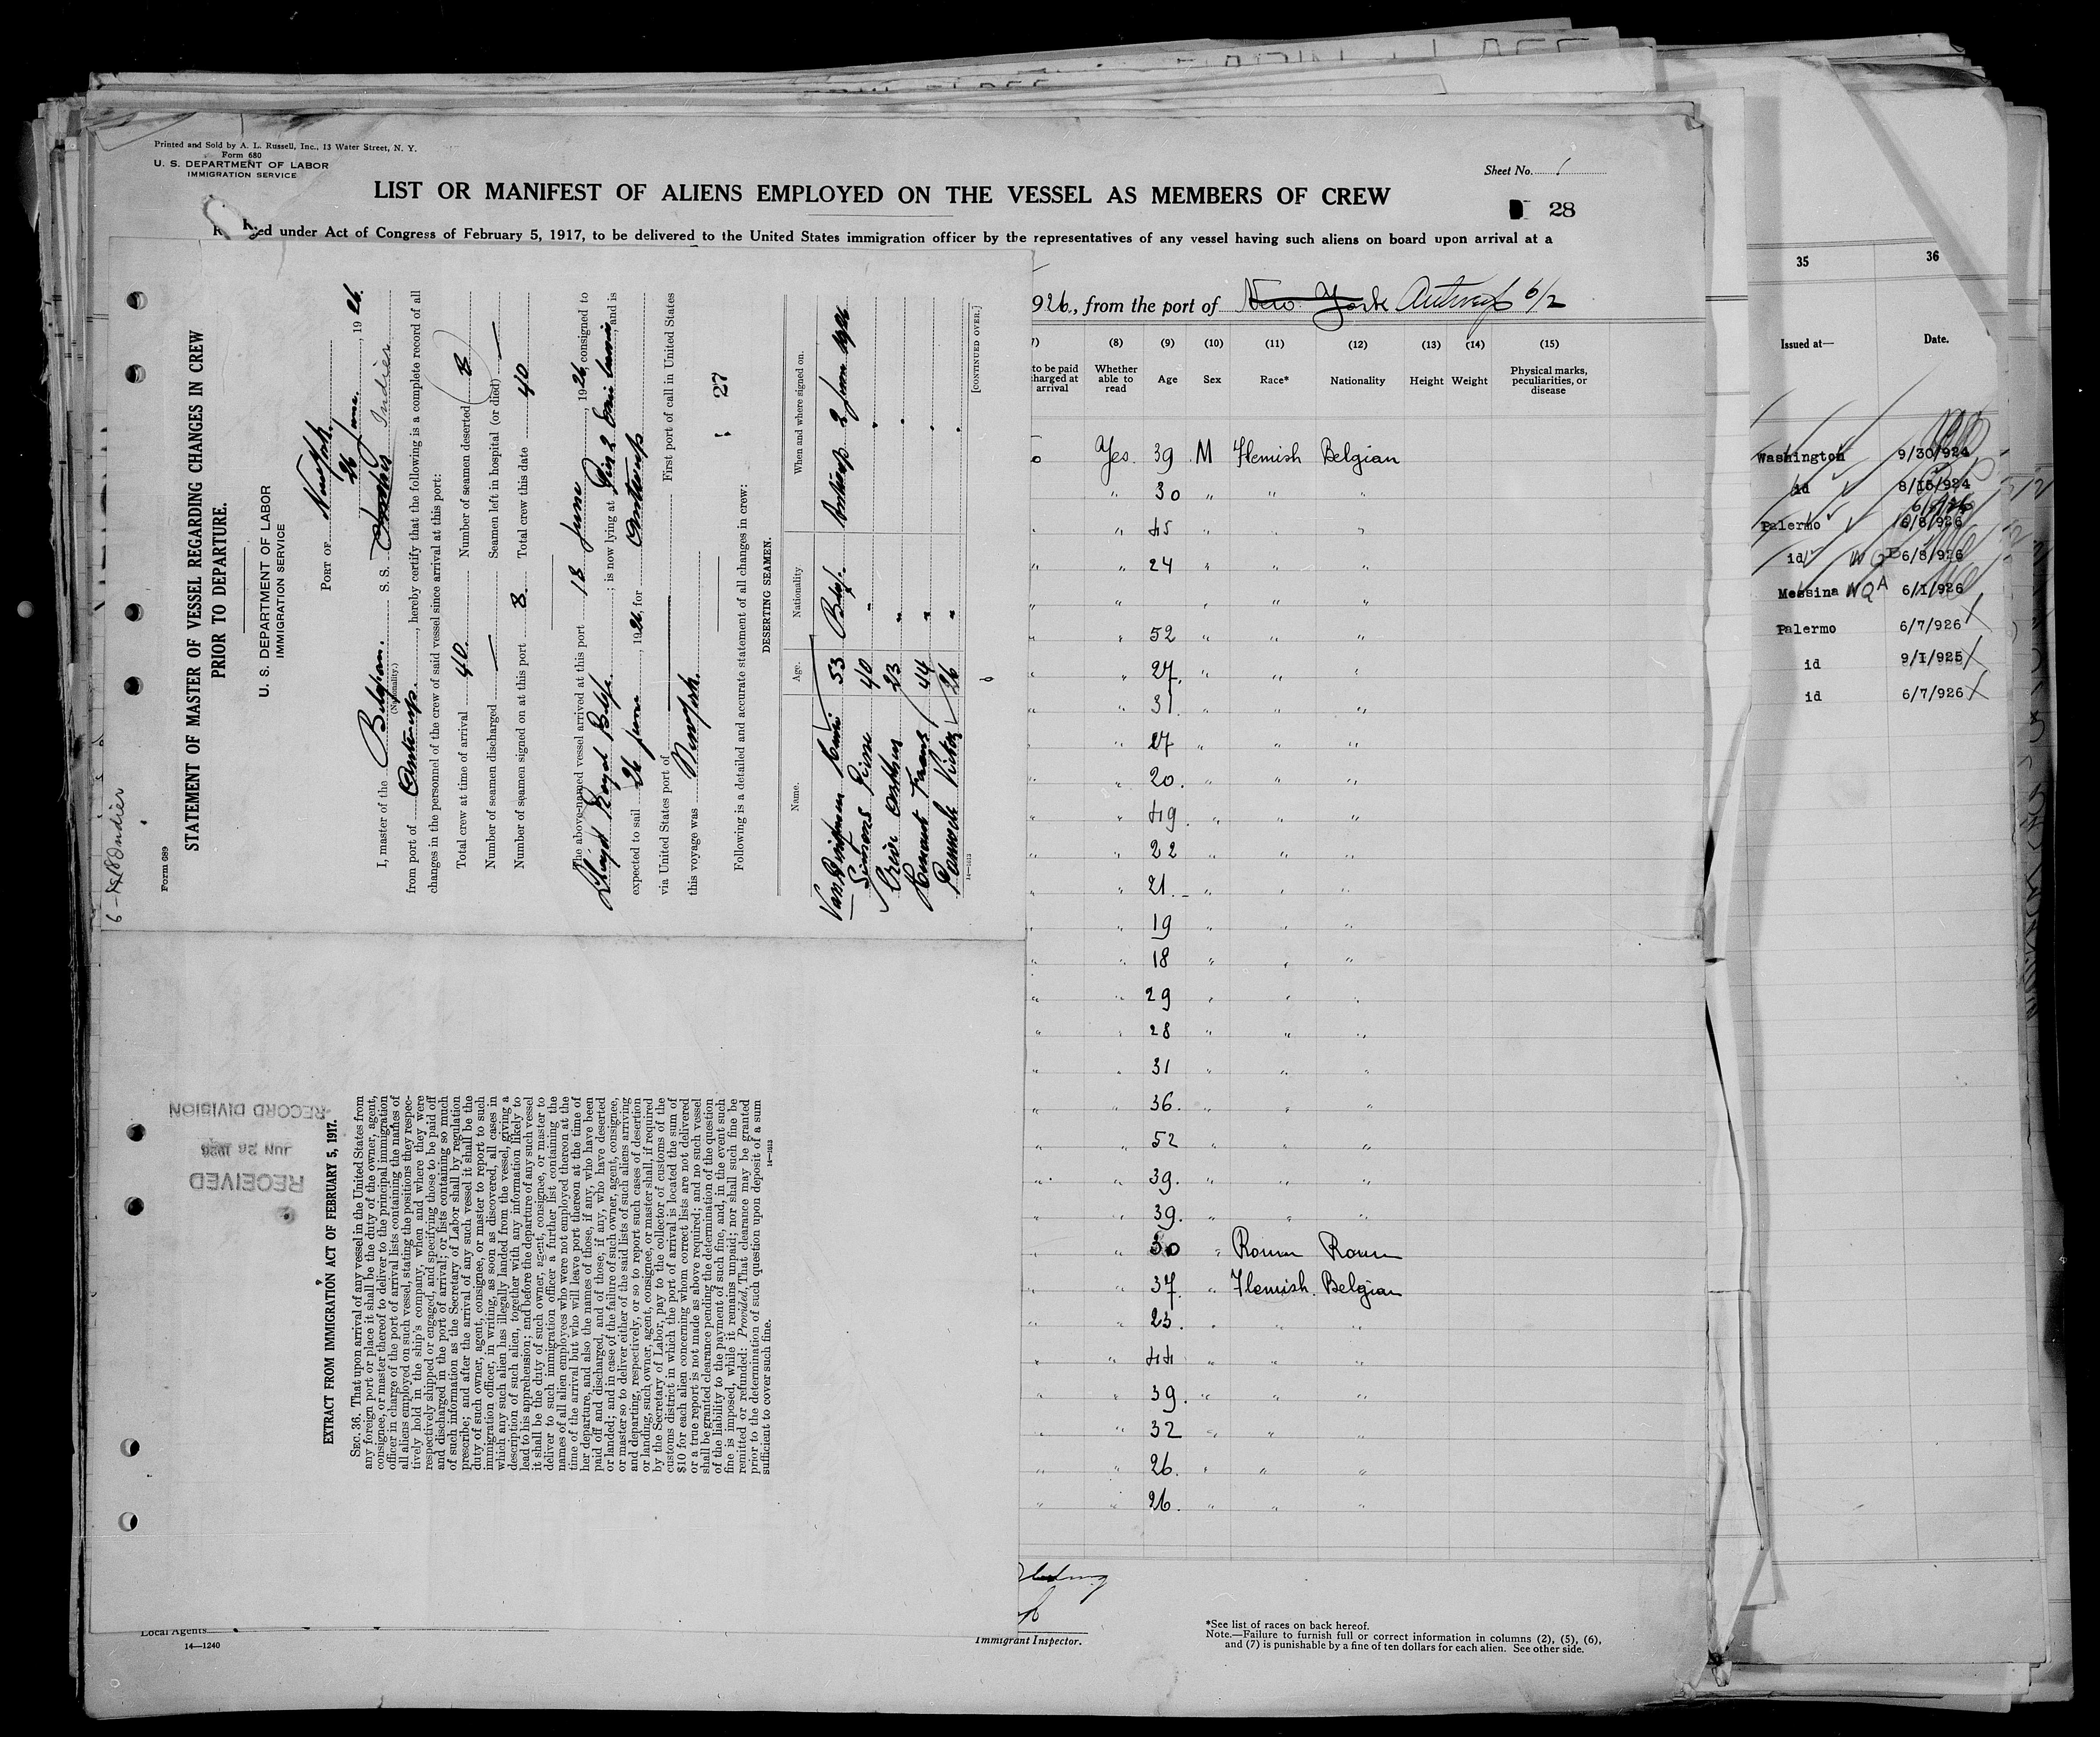 Printed and Sold by A. L. Russell, Inc., 13 Water Street, N. Y.
Form 680
U. S. DEPARTMENT OF LABOR
IMMIGRATION SERVICE
Sheet No. 1
LIST OR MANIFEST OF ALIENS EMPLOYED ON THE VESSEL AS MEMBERS OF CREW
28
under Act of Congress of February 5, 1917, to be delivered to the United States immigration officer by the representatives of any vessel having such aliens on board upon arrival at a
926., from the port of New York Antwerp 6/2
(8) (9) (10) (11) (12) (13) (14) (15)
to be paid
charged at
arrival
Whether
able to
read
Age Sex Race* Nationality Height Weight
Physical marks,
peculiarities, or
disease
Yes. 39 M Flemish Belgian
" 30 " " "
" 45 " " "
" 24 " " "
" " " "
" 52 " " "
" 27. " " "
" 31. " " "
" 27 " " "
" 20. " " "
" 49. " " "
" 22 " " "
" 21. " " "
" 19 " " "
" 18 " " "
" 29 " " "
" 28 " " "
" 31 " " "
" 36. " " "
" 52 " " "
" 39. " " "
" 39. " " "
" 30 "
" 37. " Flemish. Belgian
" 23. " " "
" 44 " " "
" 39. " " "
" 32 " " "
" 26. " " "
" 26. " " "
Immigrant Inspector.
*See list of races on back hereof.
Note.—Failure to furnish full or correct information in columns (2), (5), (6),
and (7) is punishable by a fine of ten dollars for each alien. See other side.
Local Agents
14—1240
6- Indier
Form 689
STATEMENT OF MASTER OF VESSEL REGARDING CHANGES IN CREW
PRIOR TO DEPARTURE.
U. S. DEPARTMENT OF LABOR
IMMIGRATION SERVICE
PORT OF New York.
26 June., 1926.
I, master of the Belgian. S. S. Indier
(Nationality.)
from port of Antwerp., hereby certify that the following is a complete record of all
changes in the personnel of the crew of said vessel since arrival at this port:
Total crew at time of arrival 40. Number of seamen deserted 8
Number of seamen discharged — Seamen left in hospital (or died) —
Number of seamen signed on at this port 8 Total crew this date 40
The above-named vessel arrived at this port 18 June, 1926, consigned to
Lloyd Royal Belge; is now lying at Pier 2, and is
expected to sail 26 June, 1926, for Antwerp
via United States port of First port of call in United States
this voyage was New York.
27
Following is a detailed and accurate statement of all changes in crew:
DESERTING SEAMEN.
Name. Age. Nationality When and where signed on.
53 Belge. Antwerp 2 June 1926
Simons Pierre 40 "
23 "
Frans 44 "
Victor 26 "
14—1613
[CONTINUED OVER.]
RECEIVED
JUN 26 1926
RECORD DIVISION
EXTRACT FROM IMMIGRATION ACT OF FEBRUARY 5, 1917.
SEC. 36. That upon arrival of any vessel in the United States from
any foreign port or place it shall be the duty of the owner, agent,
consignee, or master thereof to deliver to the principal immigration
officer in charge of the port of arrival lists containing the names of
all aliens employed on such vessel, stating the positions they respec-
tively hold in the ship's company, when and where they were
respectively shipped or engaged, and specifying those to be paid off
and discharged in the port of arrival; or lists containing so much
of such information as the Secretary of Labor shall by regulation
prescribe; and after the arrival of any such vessel it shall be the
duty of such owner, agent, consignee, or master to report to such
immigration officer, in writing, as soon as discovered, all cases in
which any such alien has illegally landed from the vessel, giving a
description of such alien, together with any information likely to
lead to his apprehension; and before the departure of any such vessel
it shall be the duty of such owner, agent, consignee, or master to
deliver to such immigration officer a further list containing the
names of all alien employees who were not employed thereon at the
time of the arrival but who will leave port thereon at the time of
her departure, and also the names of those, if any, who have been
paid off and discharged, and of those, if any, who have deserted
or landed; and in case of the failure of such owner, agent, consignee,
or master so to deliver either of the said lists of such aliens arriving
and departing, respectively, or so to report such cases of desertion
or landing, such owner, agent, consignee, or master shall, if required
by the Secretary of Labor, pay to the collector of customs of the
customs district in which the port of arrival is located the sum of
$10 for each alien concerning whom correct lists are not delivered
or a true report is not made as above required; and no such vessel
shall be granted clearance pending the determination of the question
of the liability to the payment of such fine, and, in the event such
fine is imposed, while it remains unpaid; nor shall such fine be
remitted or refunded: Provided, That clearance may be granted
prior to the determination of such question upon deposit of a sum
sufficient to cover such fine.
14—1613
35 36
Issued at— Date.
Washington 9/30/924
id 8/15/924
Palermo 6/8/926
id 6/8/926
Messina NQA 6/1/926
Palermo 6/7/926
id 9/1/925
id 6/7/926